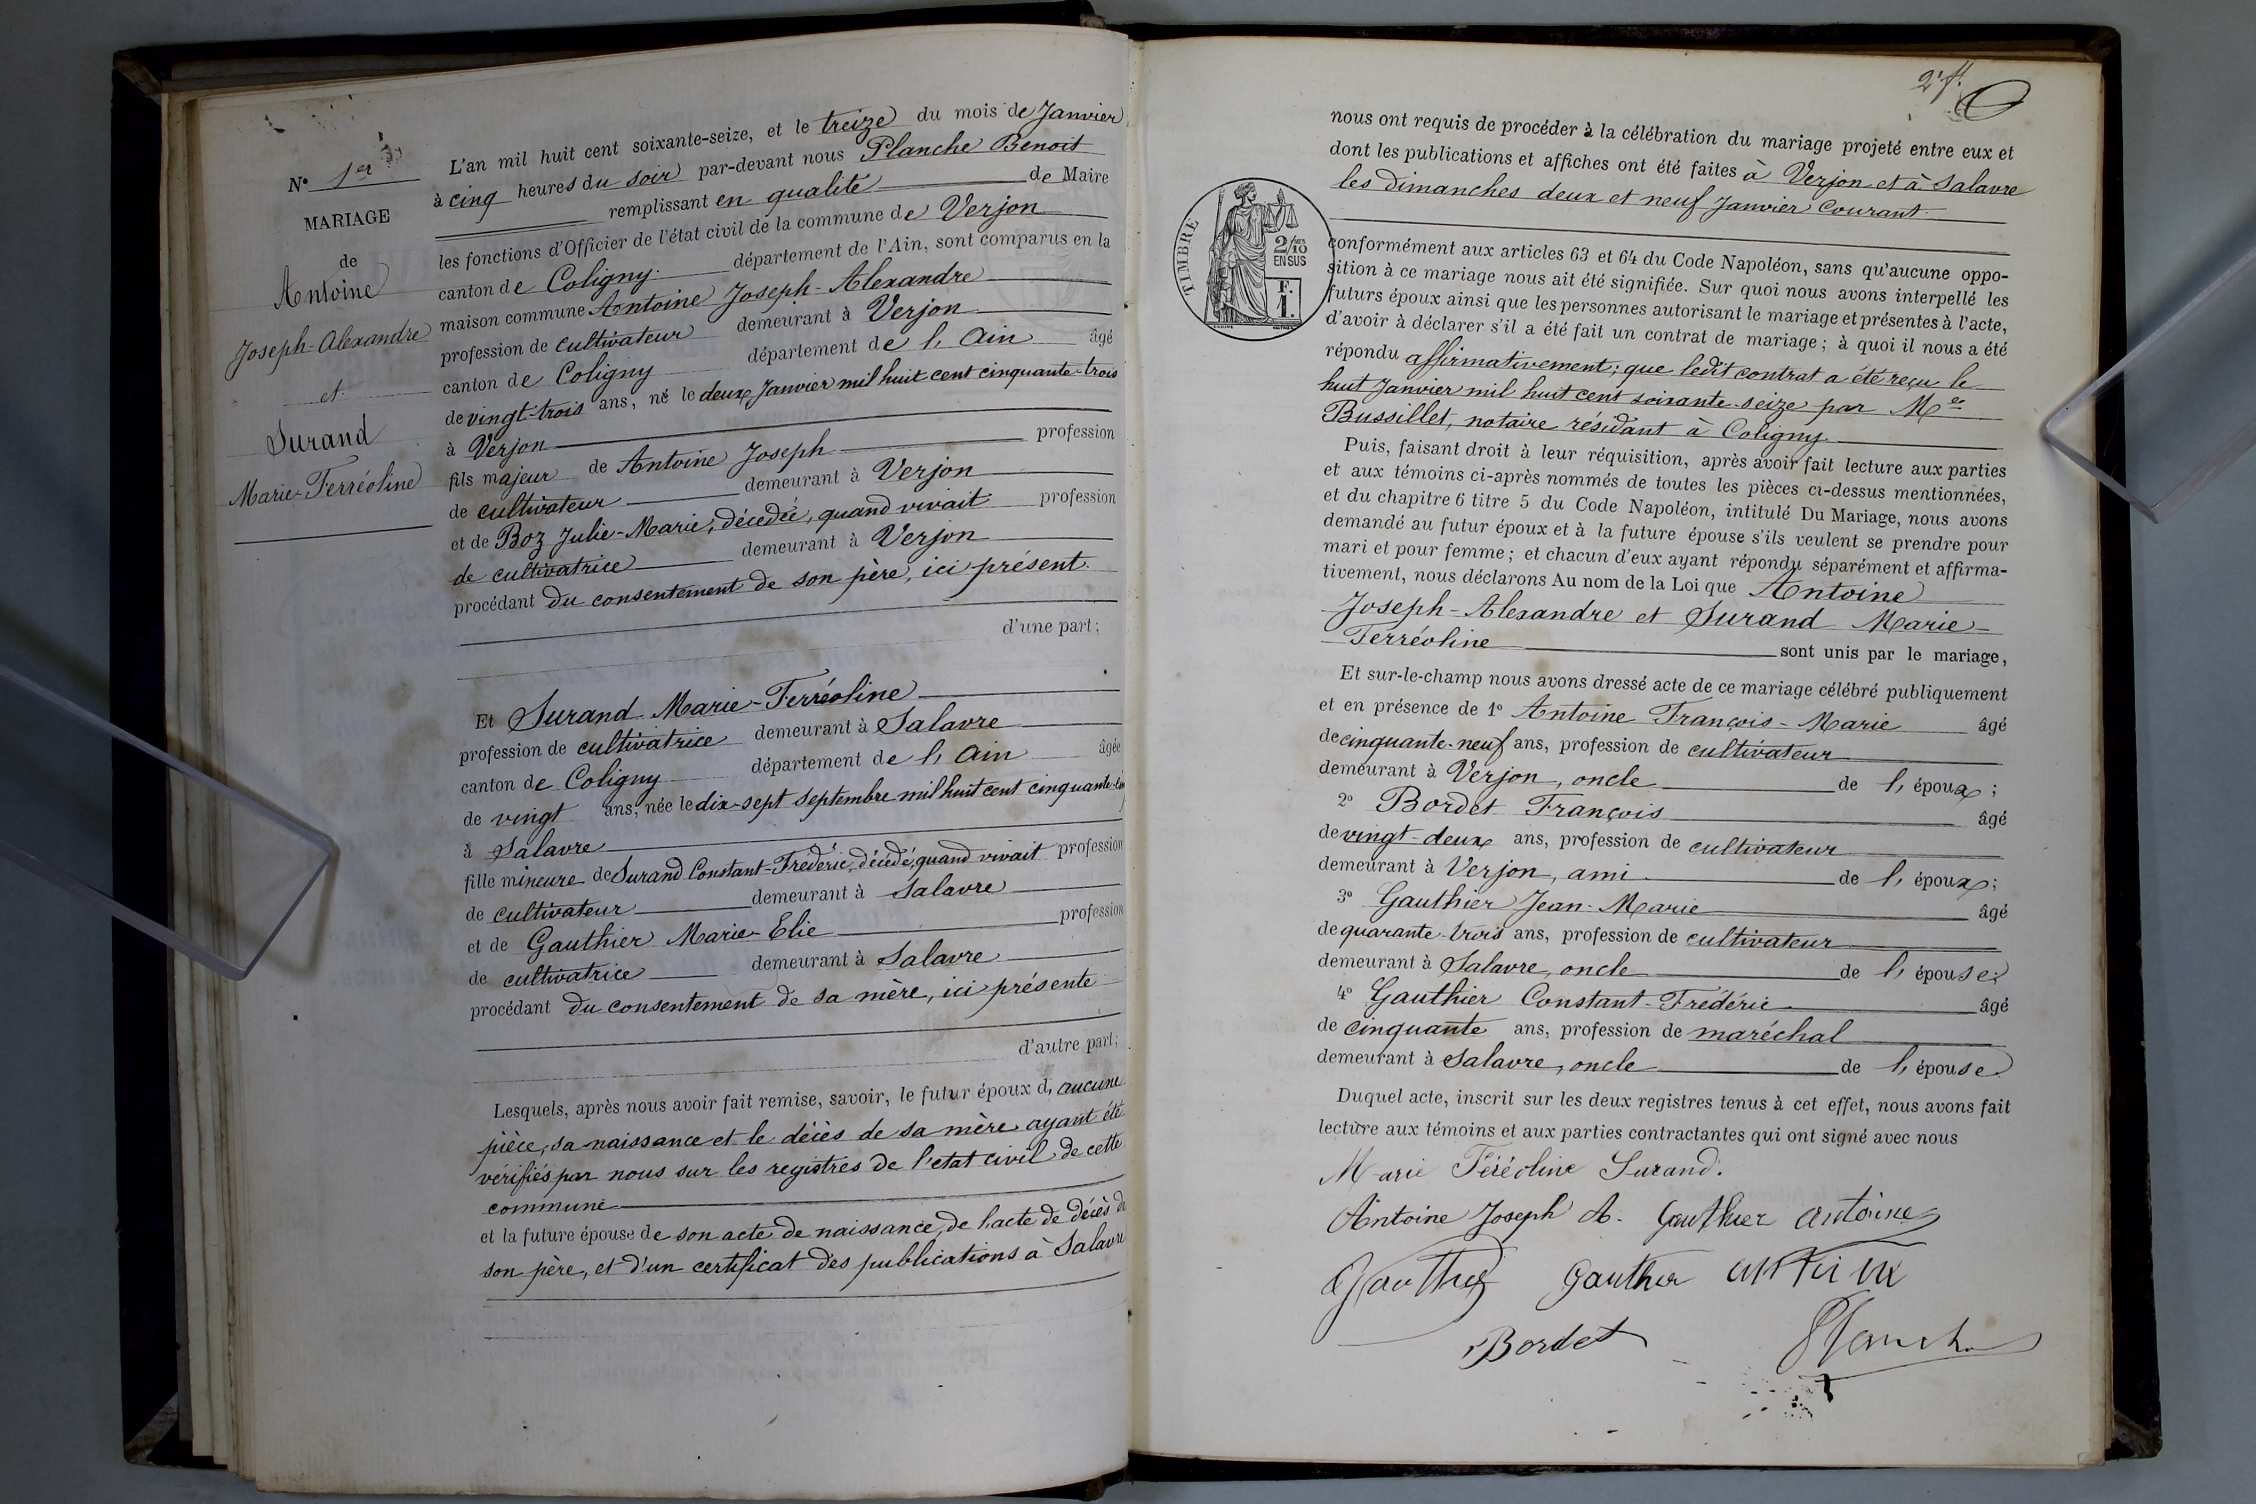 N° 1er
MARIAGE
de
Antoine
Joseph-Alexandre
et
Surand
Marie-Ferréoline
L'an mil huit cent soixante-seize, et le treize du mois de Janvier
à cinq heures du soir par-devant nous Planche Benoit
remplissant en qualité de Maire
les fonctions d'Officier de l'état civil de la commune de Verjon
canton de Coligny département de l'Ain, sont comparus en la
maison commune Antoine Joseph-Alexandre
profession de cultivateur demeurant à Verjon
canton de Coligny département de l'Ain âgé
de vingt-trois ans, né le deux Janvier mil huit cent cinquante-trois
à Verjon
fils majeur de Antoine Joseph profession
de cultivateur demeurant à Verjon
et de Boz Julie-Marie, décédée, quand vivait profession
de cultivatrice demeurant à Verjon
procédant du consentement de son père, ici présent.
d'une part;
Et Surand Marie-Ferréoline
profession de cultivatrice demeurant à Salavre
canton de Coligny département de l'Ain âgée
de vingt ans, née le dix-sept septembre mil huit cent cinquante-
à Salavre
fille mineure de Surand Constant-Frédéric, décédé, quand vivait profession
de cultivateur demeurant à Salavre
et de Gauthier Marie-Elie profession
de cultivatrice demeurant à Salavre
procédant du consentement de sa mère, ici présente
d'autre part;
Lesquels, après nous avoir fait remise, savoir, le futur époux d'aucune
pièce, sa naissance et le décès de sa mère ayant été
vérifiés par nous sur les registres de l'état civil de cette
commune
et la future épouse de son acte de naissance, de l'acte de décès de
son père, et d'un certificat des publications à Salavre
2e f.
nous ont requis de procéder à la célébration du mariage projeté entre eux et
dont les publications et affiches ont été faites à Verjon et à Salavre
les dimanches deux et neuf Janvier courant
TIMBRE
2/10
EN SUS
F.
1.
conformément aux articles 63 et 64 du Code Napoléon, sans qu'aucune oppo-
sition à ce mariage nous ait été signifiée. Sur quoi nous avons interpellé les
futurs époux ainsi que les personnes autorisant le mariage et présentes à l'acte,
d'avoir à déclarer s'il a été fait un contrat de mariage; à quoi il nous a été
répondu affirmativement; que ledit contrat a été reçu le
huit Janvier mil huit cent soixante-seize par Me
Bussillet, notaire résidant à Coligny.
Puis, faisant droit à leur réquisition, après avoir fait lecture aux parties
et aux témoins ci-après nommés de toutes les pièces ci-dessus mentionnées,
et du chapitre 6 titre 5 du Code Napoléon, intitulé Du Mariage, nous avons
demandé au futur époux et à la future épouse s'ils veulent se prendre pour
mari et pour femme; et chacun d'eux ayant répondu séparément et affirma-
tivement, nous déclarons Au nom de la Loi que Antoine
Joseph-Alexandre et Surand Marie-
Ferréoline sont unis par le mariage,
Et sur-le-champ nous avons dressé acte de ce mariage célébré publiquement
et en présence de 1° Antoine François-Marie âgé
de cinquante-neuf ans, profession de cultivateur
demeurant à Verjon, oncle de l'époux;
2° Bordet François âgé
de vingt-deux ans, profession de cultivateur
demeurant à Verjon, ami de l'époux;
3° Gauthier Jean-Marie âgé
de quarante-trois ans, profession de cultivateur
demeurant à Salavre, oncle de l'épouse;
4° Gauthier Constant-Frédéric âgé
de cinquante ans, profession de maréchal
demeurant à Salavre, oncle de l'épouse
Duquel acte, inscrit sur les deux registres tenus à cet effet, nous avons fait
lecture aux témoins et aux parties contractantes qui ont signé avec nous
Marie Féréoline Surand.
Antoine Joseph A. Gauthier Antoine
Gauthier Gauthier antoine
Bordet Planche